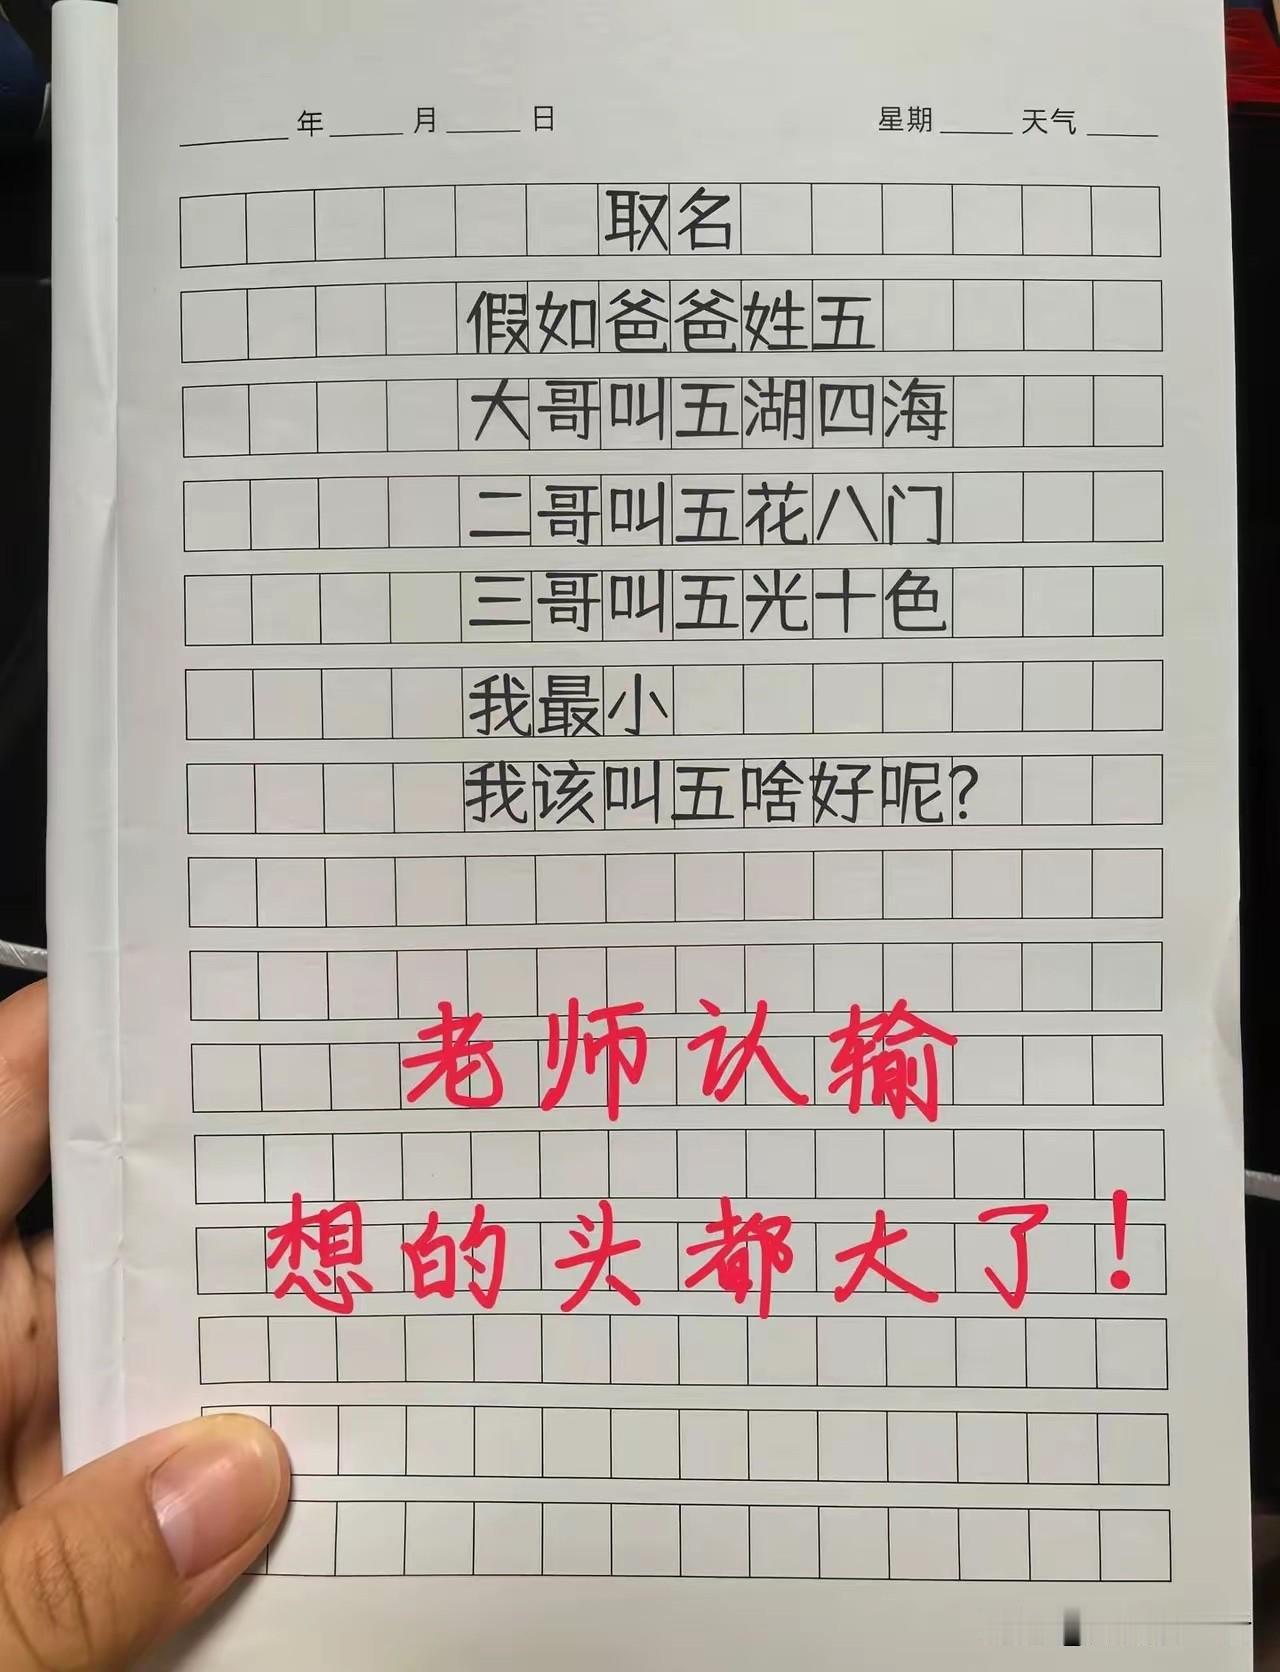 ____年____月____日 星期____天气____
取名
假如爸爸姓五
大哥叫五湖四海
二哥叫五花八门
三哥叫五光十色
我最小
我该叫五啥好呢?
老师认输
想的头都大了!